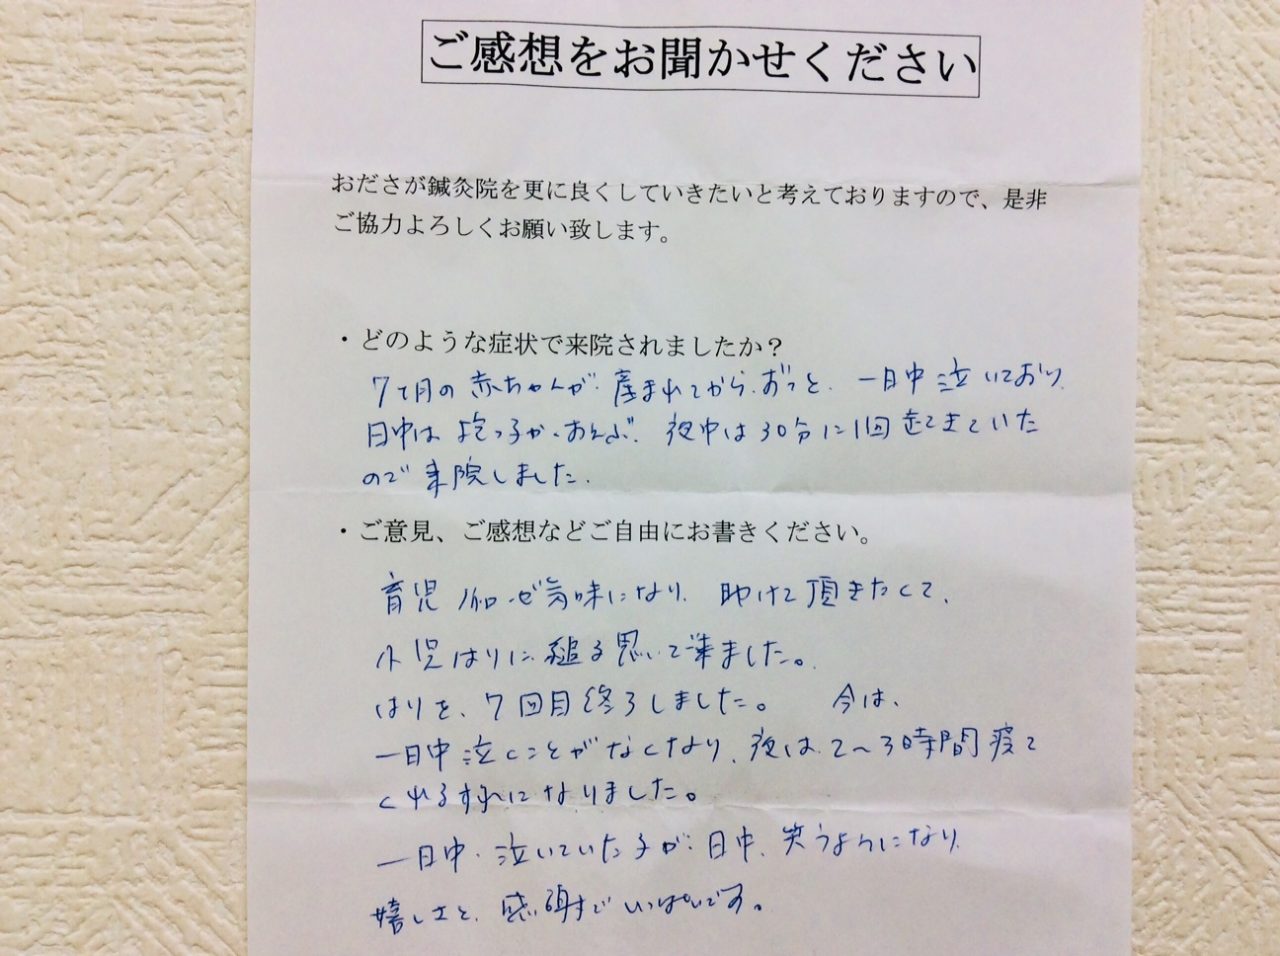 ご感想をお聞かせください
おださが鍼灸院を更に良くしていきたいと考えておりますので、是非
ご協力よろしくお願い致します。
・どのような症状で来院されましたか？
7ヶ月の赤ちゃんが、産まれてから、ずっと、一日中泣いており、
日中は抱っ子か、おんぶ、夜中は30分に1回起きていた
ので来院しました。
・ご意見、ご感想などご自由にお書きください。
育児ノイローゼ気味になり、助けて頂きたくて、
小児はりに縋る思いで来ました。
はりを、7回目終了しました。 今は、
一日中泣くことがなくなり、夜は、2〜3時間寝て
くれる様になりました。
一日中、泣いていた子が、日中、笑うようになり、
嬉しさと、感謝でいっぱいです。